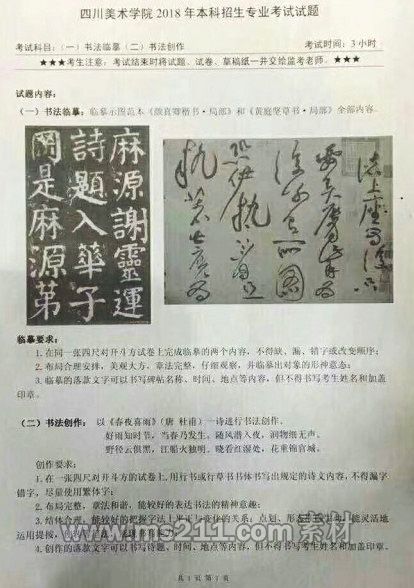 四川美术学院 2018 年本科招生专业考试试题
考试科目:(一)书法临摹(二)书法创作 考试时间:3 小时
★★★考生注意:考试结束时将试题、试卷、草稿纸一并交给监考老师。★★★
试题内容:
(一)书法临摹:临摹示图范本《颜真卿楷书·局部》和《黄庭坚草书·局部》全部内容。
麻源謝靈運
詩題入華子
岡是麻源第
诸上座为
临摹要求:
1.在同一张四尺对开斗方试卷上完成临摹的两个内容,不得缺、漏、错字或改变顺序;
2.布局合理安排,美观大方,章法完整,仔细观察,并临摹出对象的形神意态;
3.临摹的落款文字可以书写碑帖名称、时间、地点等内容,但不得书写考生姓名和加盖
印章。
(二)书法创作: 以《春夜喜雨》(唐 杜甫)一诗进行书法创作。
好雨知时节,当春乃发生。随风潜入夜,润物细无声。
野径云俱黑,江船火独明。晓看红湿处,花重锦官城。
创作要求:
1.在一张四尺对开斗方的试卷上,用行书或行草书书体书写出规定的诗文内容,不得漏字
错字,尽量使用繁体字;
2.布局完整,章法和谐,能较好的表达书法的精神意趣;
3.结体合理,能较好的把握字法上
运用提按、
4.创作的落款文字可以书写诗题、时间、地点等内容,但不得书写考生姓名和加盖印章。
www.ms211.com素材
共 1 页 第 1 页